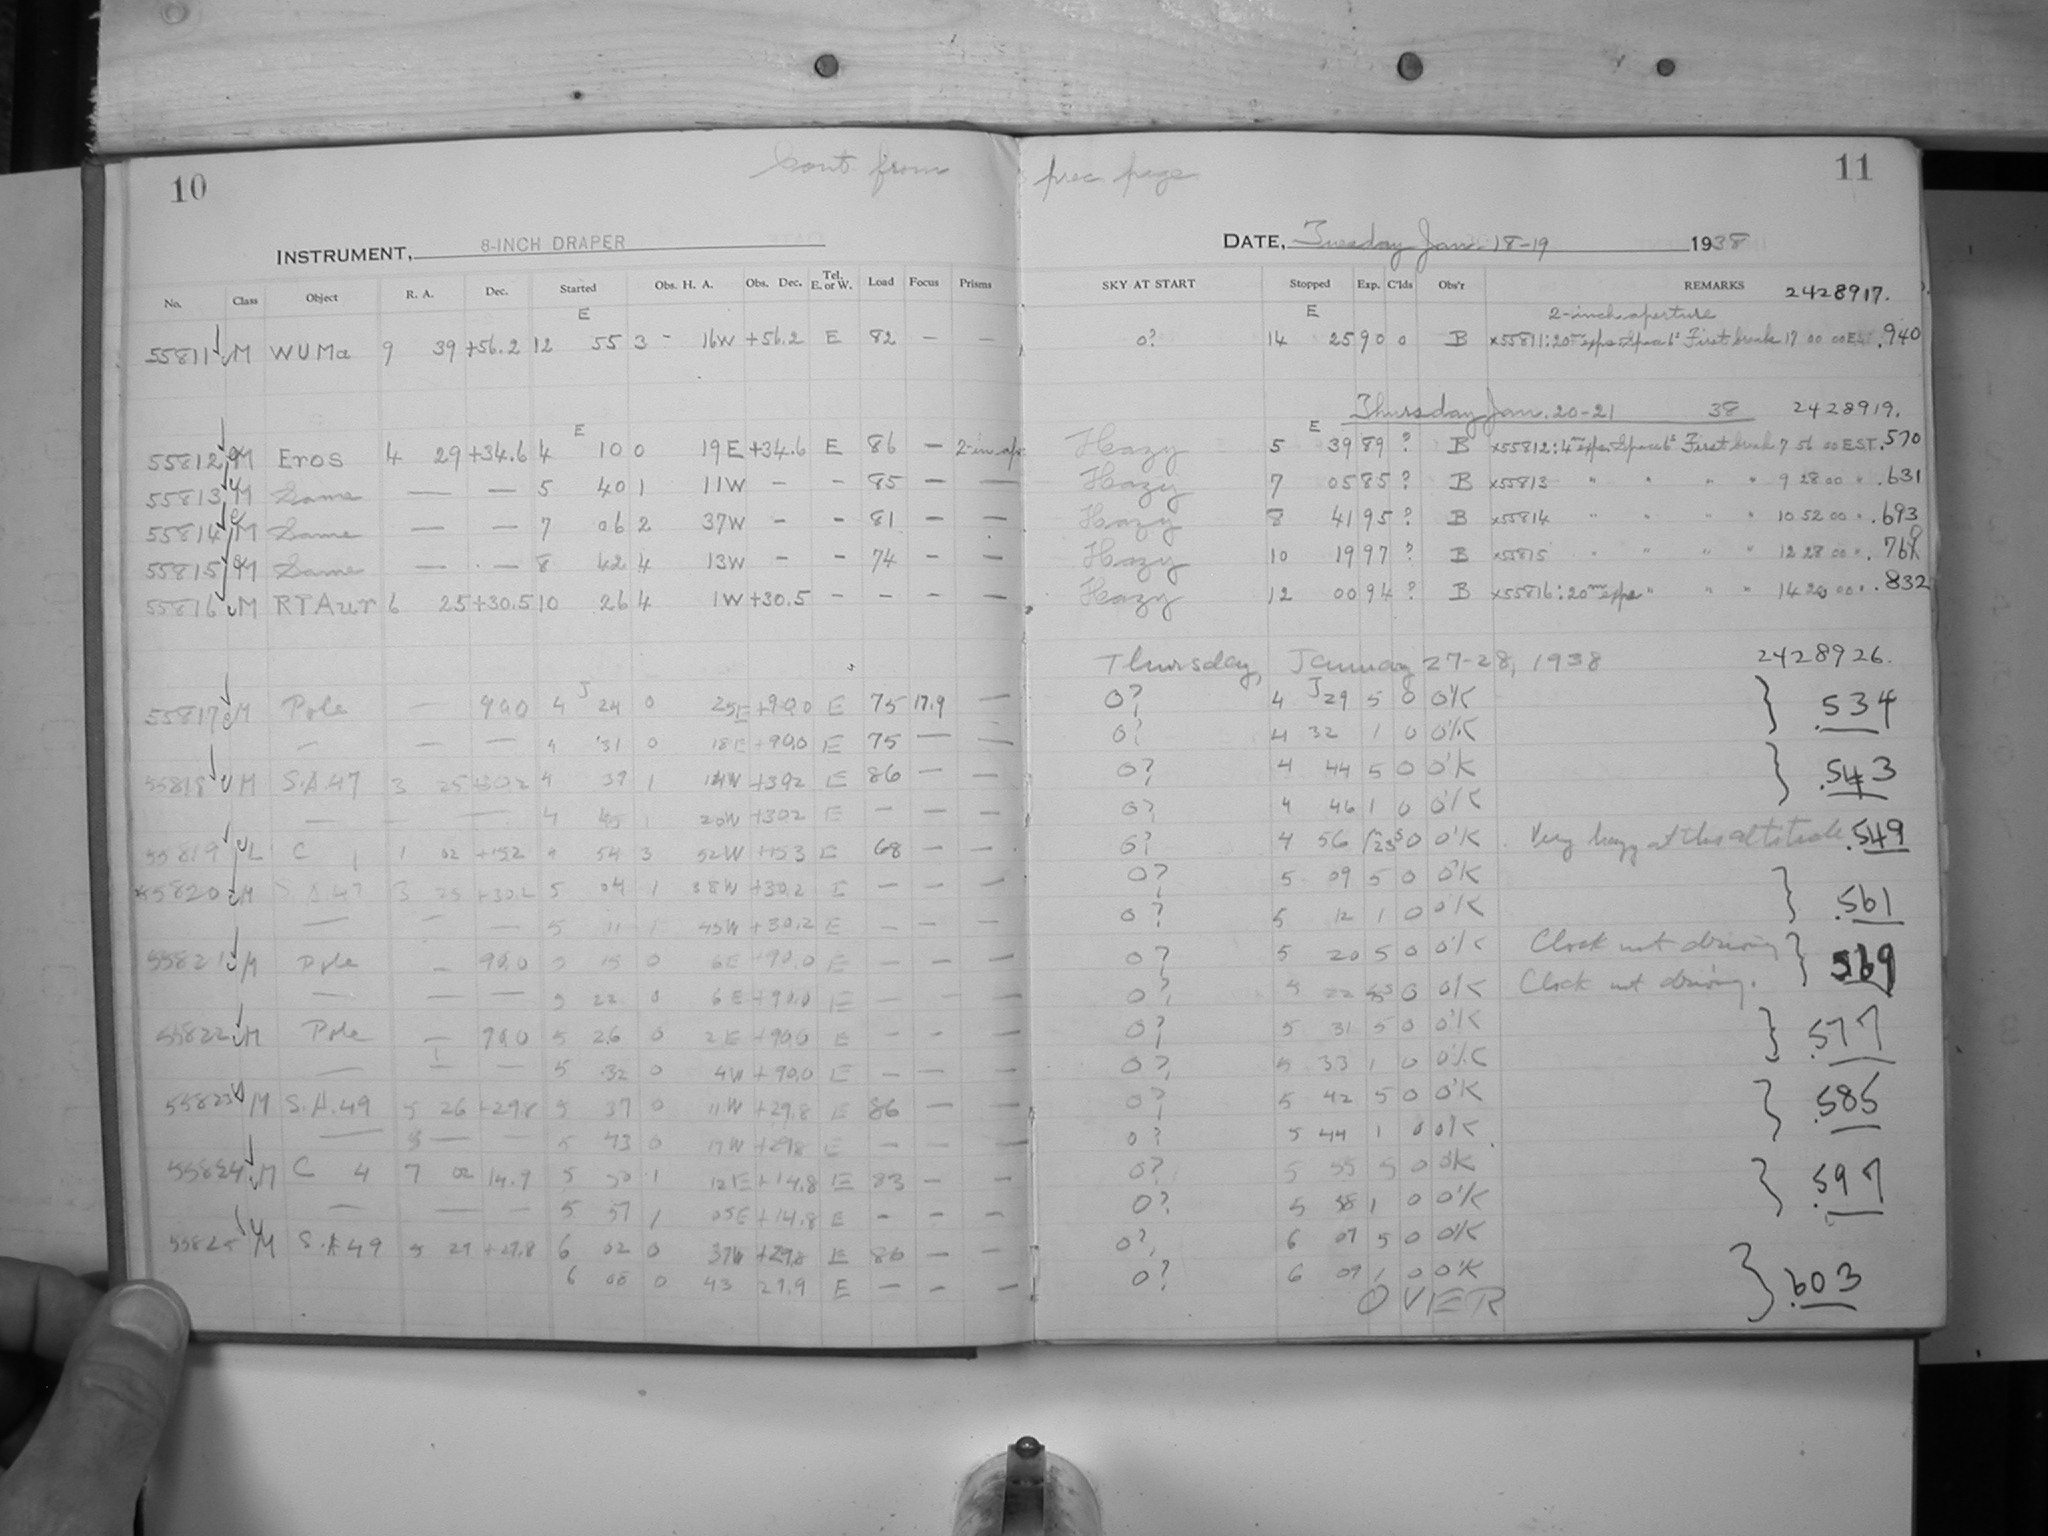 Cont. from prec. page
10
11
INSTRUMENT, 8-INCH DRAPER
DATE, Tuesday Jan. 18-19 1938
No. Class Object R. A. Dec. Started Obs. H. A. Obs. Dec. Tel. E. or W. Load Focus Prisms SKY AT START Stopped Exp. C'lds Obs'r REMARKS 2428917.
E E 2-inch aperture
55811 M WUMa 9 39 +56.2 12 55 3 - 16W +56.2 E 82 — — 0? 14 25 90 0 B x55811: 20m exps. Space 6s First break 17 00 00 EST .940
Thursday Jan. 20-21 38 2428919.
E E
55812 M Eros 4 29 +34.6 4 10 0 19E +34.6 E 86 — 2-in. ape Hazy 5 39 89 ? B x55812: 4m exps. Space 6s First break 7 56 00 EST. .570
55813 M Same — — 5 40 1 11W - - 85 — — Hazy 7 05 85 ? B x55813 " " " " 9 28 00 " .631
55814 M Same — — 7 06 2 37W - - 81 — — Hazy 8 41 95 ? B x55814 " " " " 10 52 00 " .693
55815 M Same — — 8 42 4 13W - - 74 — — Hazy 10 19 97 ? B x55815 " " " " 12 28 00 "
55816 M RTAur 6 25 +30.5 10 26 4 1W +30.5 - - — — Hazy 12 00 94 ? B x55816: 20m exps " " " 14 20 00 " .832
Thursday, January 27-28, 1938 2428926.
55817 M Pole — 90.0 4 J 24 0 25E +90.0 E 75 17.9 — 0? 4 J 29 5 0 O'K } .534
— — — 4 31 0 18E +90.0 E 75 — — 0? 4 32 1 0 O'K
55818 M S.A.47 3 25 +30.2 4 39 1 14W +30.2 E 86 — — 0? 4 44 5 0 O'K } .543
— — — 4 45 1 20W +30.2 E — — — 0? 4 46 1 0 O'K
55819 L C 1 1 02 +15.2 4 54 3 52W +15.3 E 68 — — 0? 4 56 0 O'K Very hazy at this altitude .549
x55820 M S.A.47 3 25 +30.2 5 04 1 38W +30.2 E — — — 0? 5 09 5 0 O'K } .561
— — — 5 11 1 45W +30.2 E — — — 0? 5 12 1 0 O'K
55821 M Pole — 90.0 5 15 0 6E +90.0 E — — — 0? 5 20 5 0 O'K Clock not driving } .569
— — — 5 22 0 6E +90.0 E — — — 0? 5 22 0 O'K Clock not driving.
55822 M Pole — 90.0 5 26 0 2E +90.0 E — — — 0? 5 31 5 0 O'K } .577
— — — 5 32 0 4W +90.0 E — — — 0? 5 33 1 0 O'K
55823 M S.A.49 5 26 +29.8 5 37 0 11W +29.8 E 86 — — 0? 5 42 5 0 O'K } .585
— 5 — — 5 43 0 17W +29.8 E — — — 0? 5 44 1 0 O'K
55824 M C 4 7 02 14.9 5 50 1 12E +14.8 E 83 — — 0? 5 55 5 0 O'K } .597
— — — 5 57 1 05E +14.8 E — — — 0? 5 58 1 0 O'K
55825 M S.A.49 5 27 +29.8 6 02 0 37W +29.8 E 86 — — 0? 6 07 5 0 O'K } .603
6 08 0 43 29.9 E — — — 0? 6 09 1 0 O'K
OVER